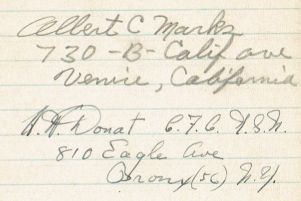 Albert C Markz
730-B-Calif ave
Venice, California
H.H. Donat C.F.C. U.S.N.
810 Eagle Ave
Bronx (56) N.Y.